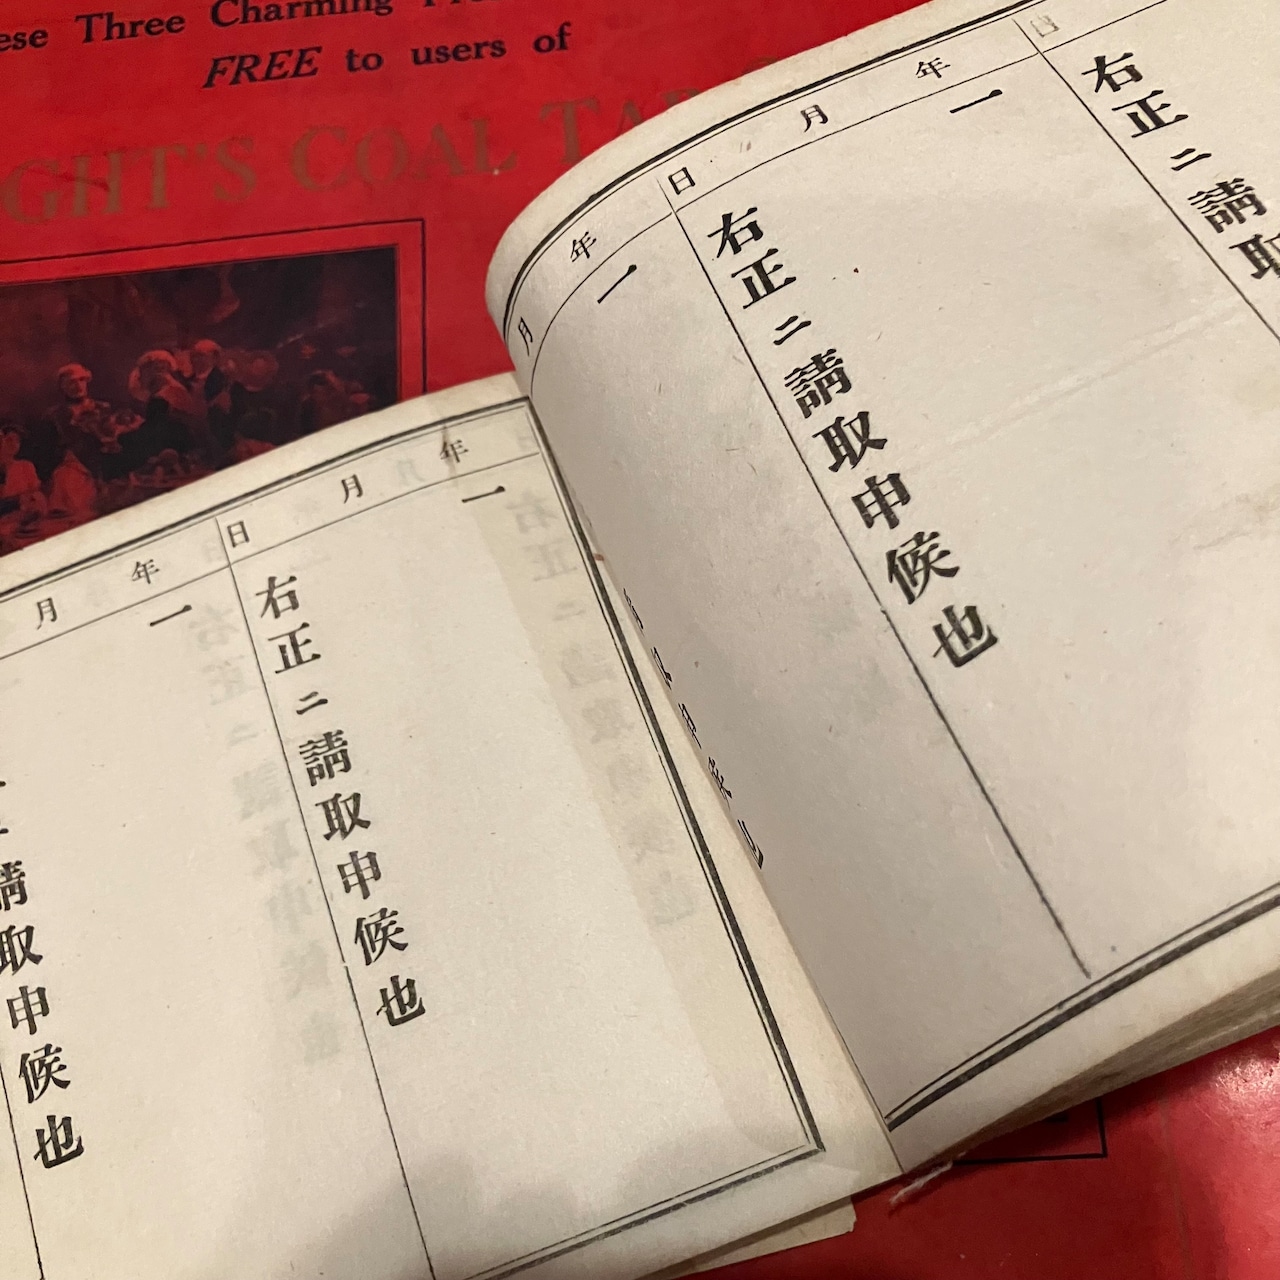 ese Three Charming
FREE to users of
GHT'S COAL TA
年 月 日
一
右正ニ請取申候也
年 月 日
一
右正ニ請取
年 月
一
年 月 日
一
右正ニ請取申候也
年 月
一
請取申候也